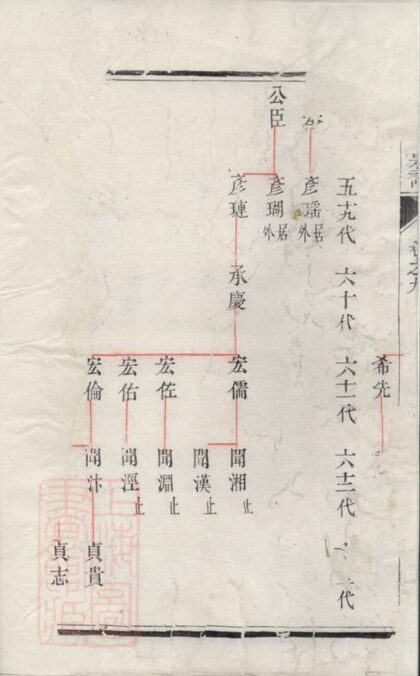 卷之九
希先
五十九代 六十代 六十一代 六十二代 代
彥瑤 居外
公臣 彥瑚 居外
彥璉 承慶 宏儒 聞湘 止
聞漢 止
宏佐 聞淵 止
宏佑 聞涇 止
宏倫 聞汴 貞貴
貞志